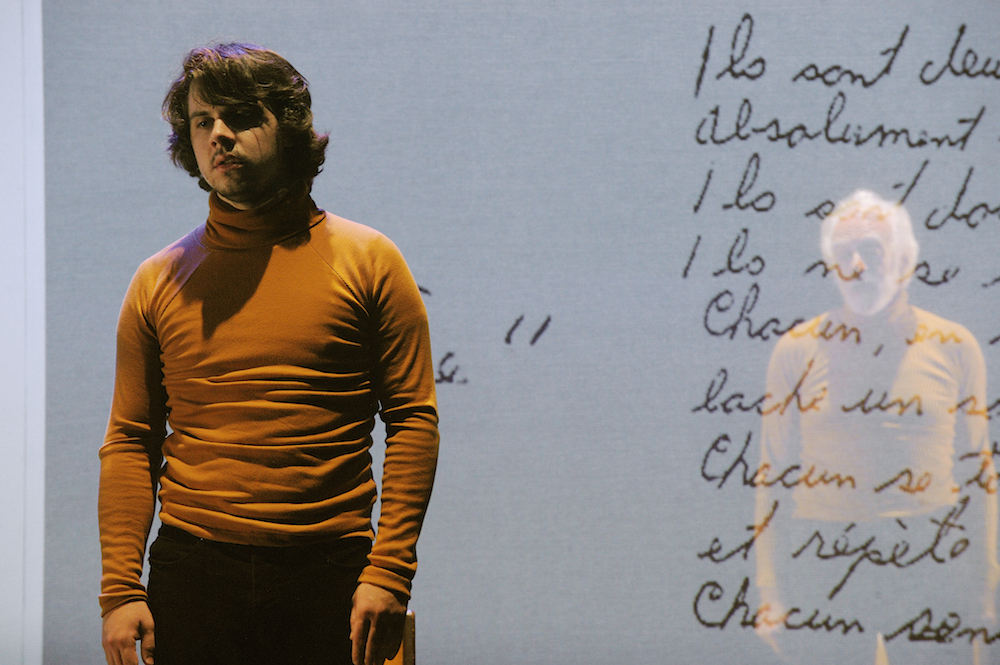 "
Ils sont deu
Absolument
Ils
Ils ne se
Chacun, en
laché un
Chacun se
et répète
Chacun son